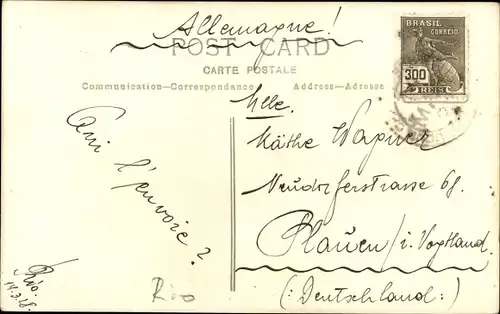 Allemagne!
POST CARD
CARTE POSTALE
Communication—Correspondence
Address—Adresse
BRASIL
CORREIO
300
REIS
Mlle.
Käthe Wagner
Neudorferstrasse 68.
Plauen / i. Vogtland.
(: Deutschland :)
Qui l'envoie?
Rio.
Rio